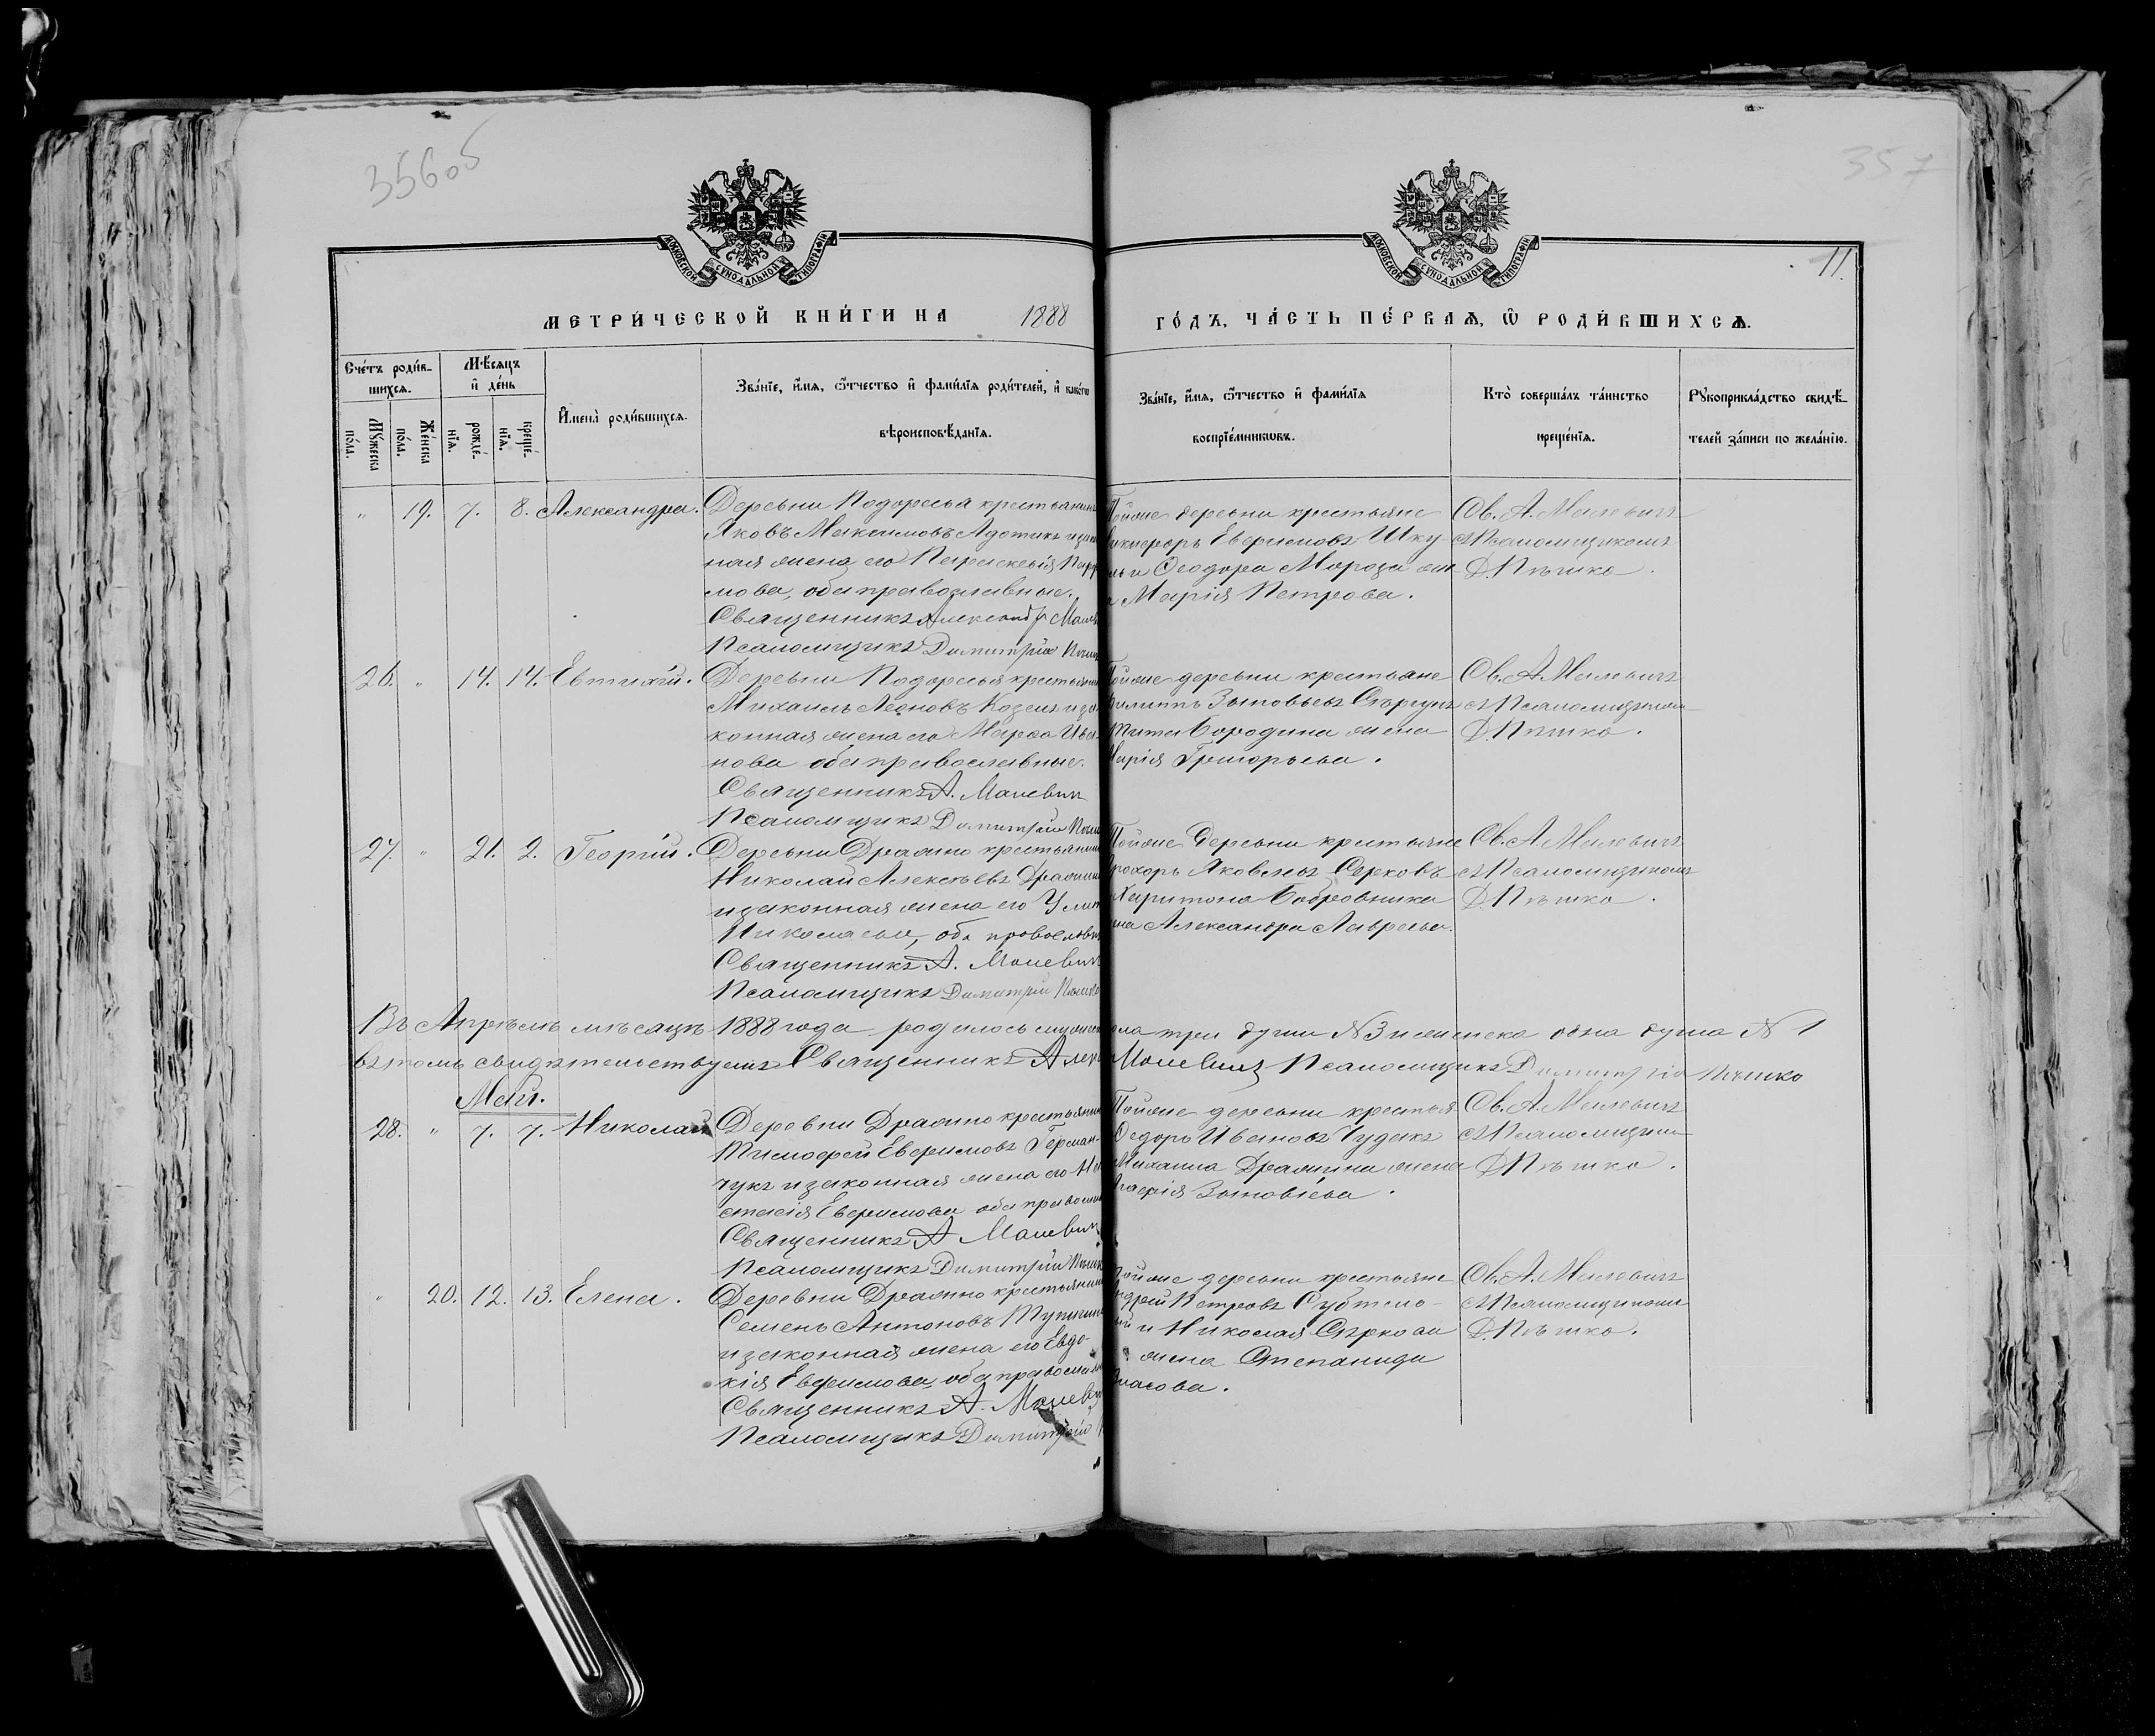 356об
357
МОСКОВСКОЙ СѴНОДАЛЬНОЙ ТИПОГРАФІИ
МОСКОВСКОЙ СѴНОДАЛЬНОЙ ТИПОГРАФІИ
11.
МЕТРИ́ЧЕСКОЙ КНИ́ГИ НА 1888 ГО́ДЪ, ЧА́СТЬ ПЕ́РВАѦ, Ѡ҆ РОДИ́ВШИХСѦ.
Сче́тъ роди́в-
шихсѧ.
Мꙋ́жеска
по́ла.
Же́нска
по́ла.
Мѣ́сѧцъ
и҆ де́нь
рожде́-
нїѧ.
креще́-
нїѧ.
И҆мена̀ роди́вшихсѧ.
Зва́нїе, и҆́мѧ, ѻ҆́тчество и҆ фами́лїѧ роди́телей, и҆ како́гѡ
вѣроисповѣ́данїѧ.
Зва́нїе, и҆́мѧ, ѻ҆́тчество и҆ фами́лїѧ
воспрїе́мникѡвъ.
Кто̀ соверша́лъ та́инство
креще́нїѧ.
Рꙋкоприкла́дство свидѣ́-
телей за́писи по жела́нїю.
" 19. 7. 8. Александра.
Деревни Подоресья крестьянинъ
Яковъ Максимовъ Адотикъ и зак
ная жена его Параскевія
мова, оба православные.
Священникъ Александр Мале
Псаломщикъ Димитрій
Тойже деревни крестьяне
икифоръ Евфимовъ Шку
и Ѳеодора Мороза жен
а Марія Петрова.
Св. А. Малевичъ
съ Псаломщикомъ
Д. Пѣшко.
26. " 14. 14. Евтихій.
Деревни Подоресья крестьянин
Михаилъ Леоновъ Козелъ и за-
конная жена его Марѳа Ива-
нова оба православные.
Священникъ А. Малевич
Псаломщикъ Димитрій
Тойже деревни крестьяне
Филиппъ Зиновьевъ
Тита Бородина жена
Марія Григорьева.
Св. А. Малевичъ
съ Псаломщиком
Д. Пѣшко.
27. " 21. 2. Георгій.
Деревни Дражно крестьянин
Николай Алексѣевъ Дражин
и законная жена его Улит
Николаева, оба православн
Священникъ А. Малевич
Псаломщикъ Димитрій Пѣшко
Тойже деревни крестьяне
Прохоръ Яковлевъ Серковъ
Харитона Бобровника
на Александра Лаврева.
Св. А. Малевичъ
съ Псаломщикомъ
Д. Пѣшко.
Въ Апрѣлѣ мѣсяцѣ 1888 года родилось мужеск ола три души N 3 и женска одна душа N 1
въ томъ свидѣтельствуемъ Священникъ Алек Малевичъ Псаломщикъ Димитрій Пѣшко
Май.
28. " 7. 7. Николай
Деревни Дражно крестьянин
Тимофей Евфимовъ Герман-
чукъ и законная жена его На
стасія Евфимова оба правосла
Священникъ А Малевич
Псаломщикъ Димитрій Пѣшк
Тойже деревни крестья
Ѳедоръ Ивановъ Чудакъ
Михаила Дражина жена
Марія Зиновіева.
Св. А. Малевичъ
съ Псаломщиком
Д. Пѣшко.
" 20. 12. 13. Елена.
Деревни Дражно крестьянин
Семенъ Антоновъ
и законная жена его Евдо-
кія Евфимова, оба правосла
Священникъ А. Малев
Псаломщикъ Димитрій
Тойже деревни крестьяне
ндрей Петровъ Субтело-
ый и Николая Сѣркова
жена Степанида
Власова.
Св. А. Малевичъ
съ Псаломщиком
Д. Пѣшко.